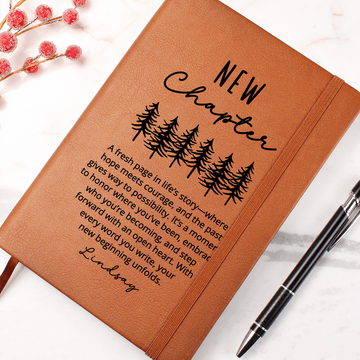 NEW
Chapter
A fresh page in life's story—where
hope meets courage, and the past
gives way to possibility. It's a moment
to honor where you've been, embrace
who you're becoming, and step
forward with an open heart. With
every word you write, your
new beginning unfolds.
Lindsay